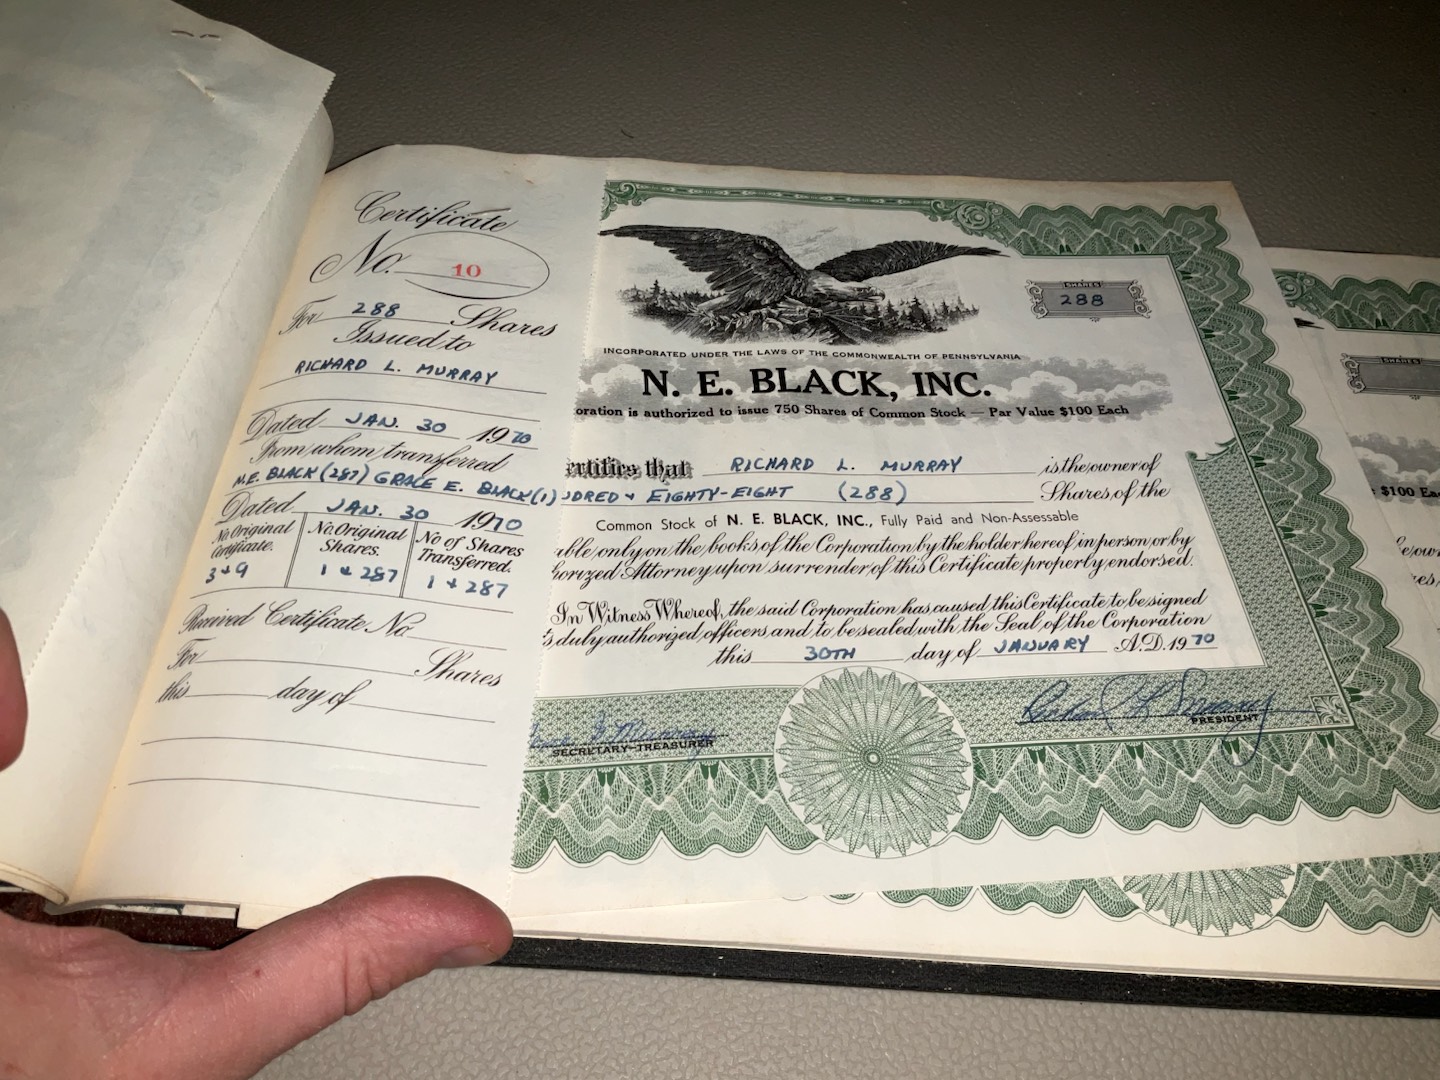 Certificate
No. 10
For 288 Shares
Issued to
RICHARD L. MURRAY
Dated JAN. 30 1970
From whom transferred
N.E. BLACK (287) GRACE E. BLACK (1)
Dated JAN. 30 1970
No. Original Certificate. No. Original Shares. No of Shares Transferred.
3 + 9 1 + 287 1 + 287
Received Certificate No
For Shares
this day of
SHARES
288
INCORPORATED UNDER THE LAWS OF THE COMMONWEALTH OF PENNSYLVANIA
N. E. BLACK, INC.
oration is authorized to issue 750 Shares of Common Stock — Par Value $100 Each
ertifies that RICHARD L. MURRAY is the owner of
DRED + EIGHTY-EIGHT (288) Shares of the
Common Stock of N. E. BLACK, INC., Fully Paid and Non-Assessable
able only on the books of the Corporation by the holder hereof in person or by
horized Attorney upon surrender of this Certificate properly endorsed.
In Witness Whereof, the said Corporation has caused this Certificate to be signed
s duly authorized officers and to be sealed with the Seal of the Corporation
this 30TH day of JANUARY A.D. 1970
SECRETARY-TREASURER
PRESIDENT
SHARES
$100 Ea